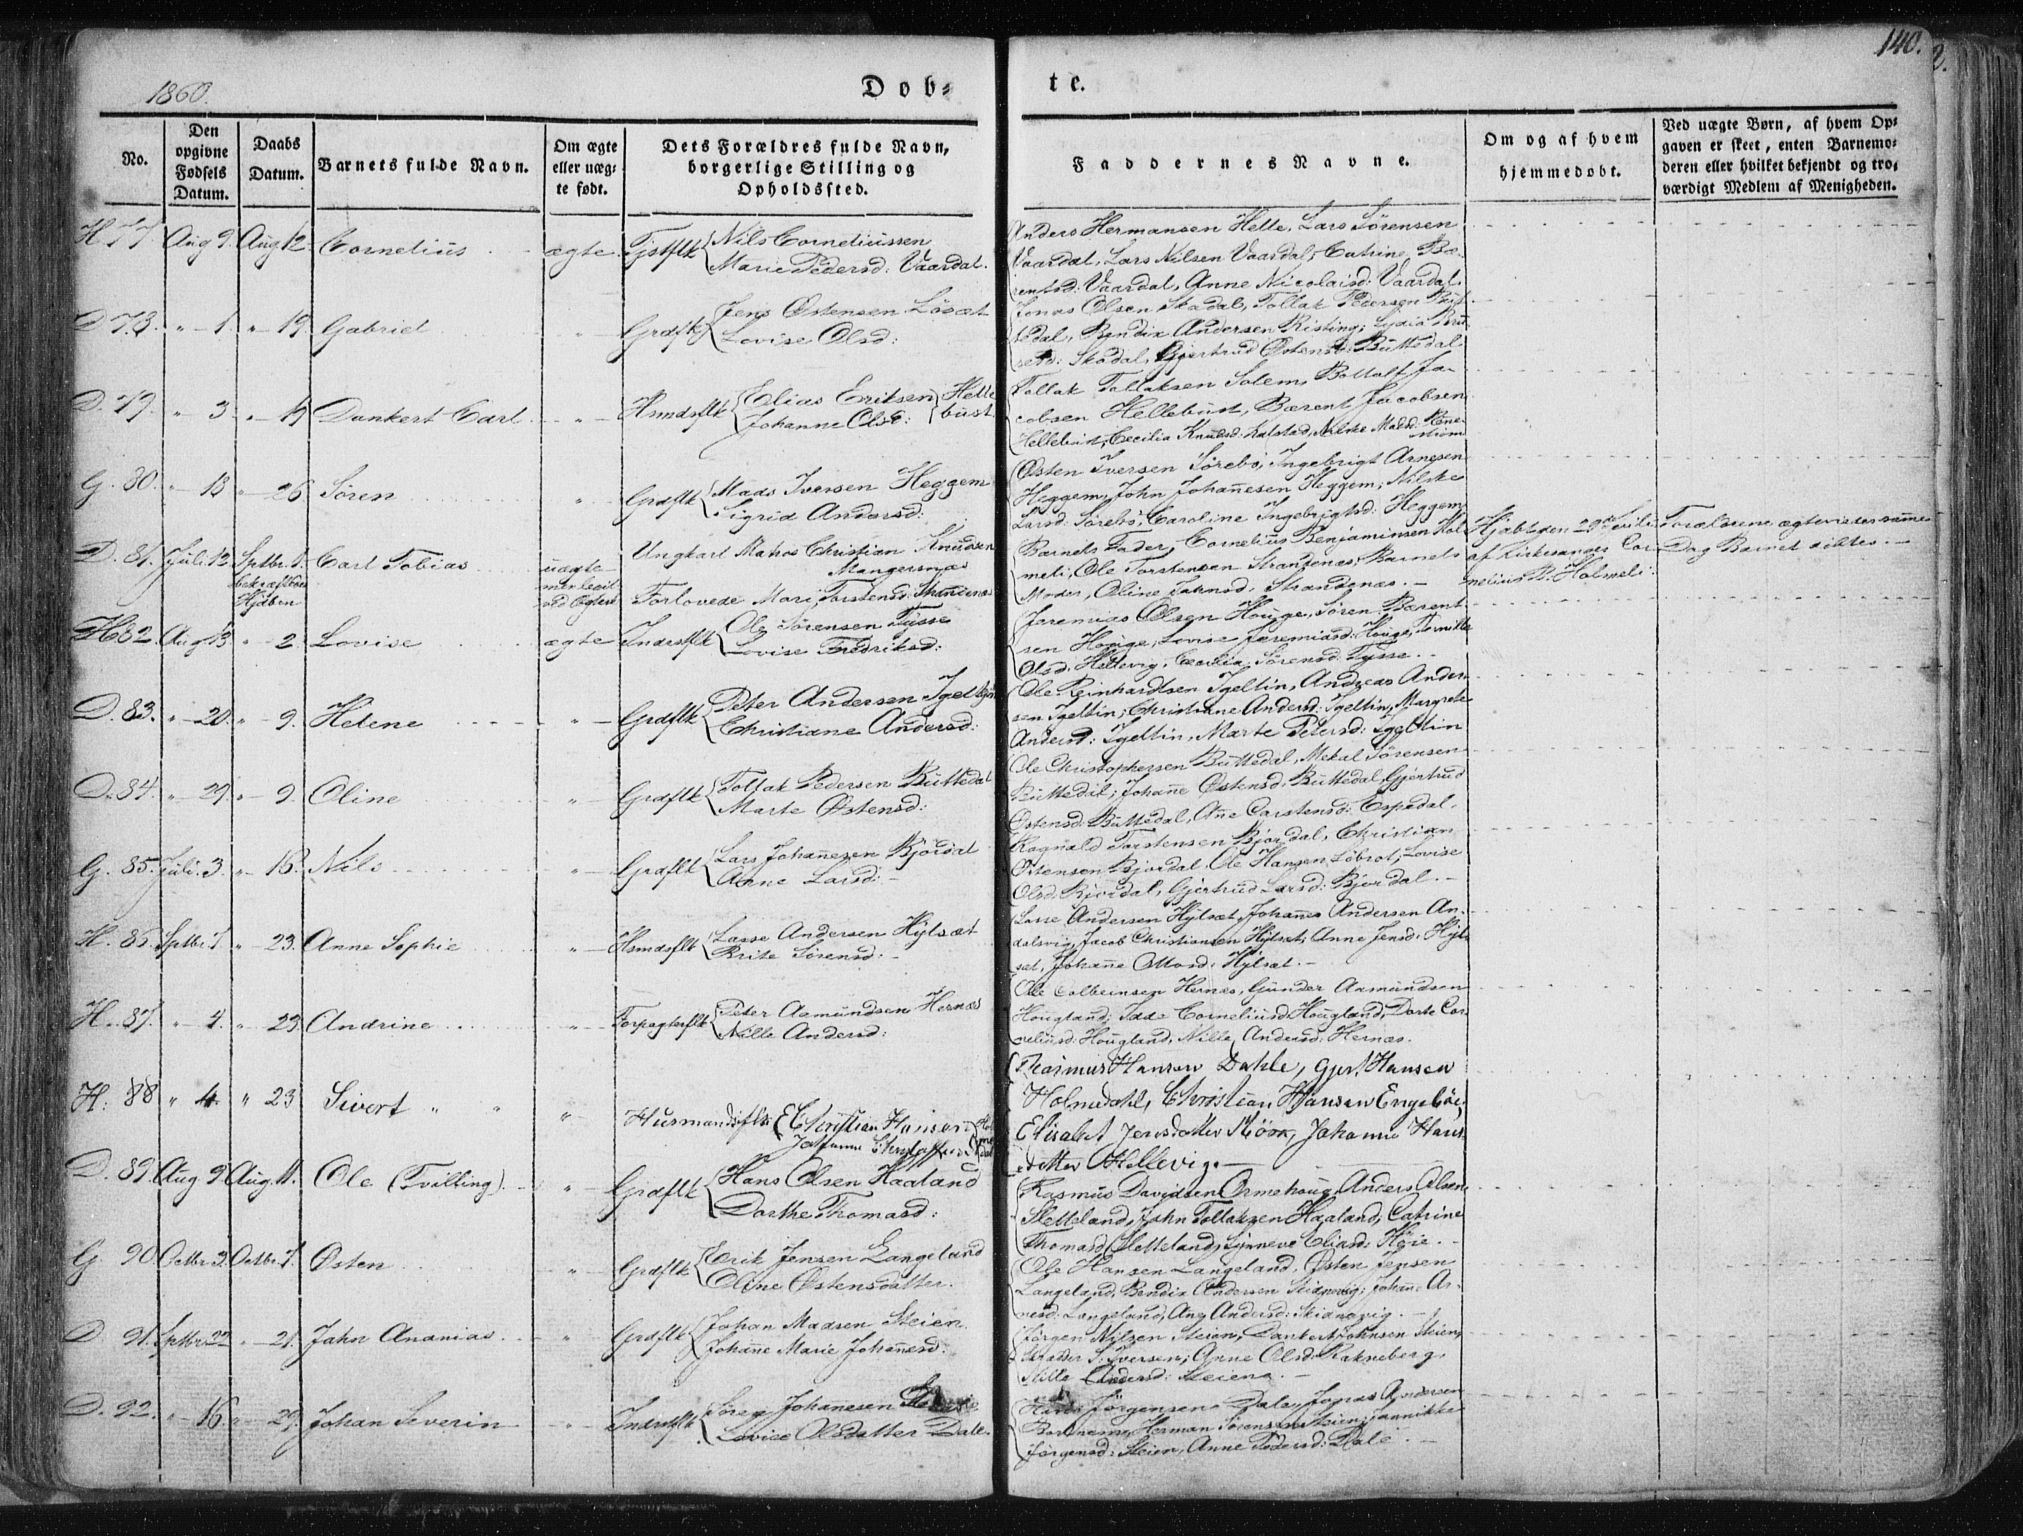 1860.
Døb-
te.
140.
2.
No.
Den opgivne Fødsels Datum.
Daabs Datum.
Barnets fulde Navn.
Om ægte eller uægte født.
Dets Forældres fulde Navn, borgerlige Stilling og Opholdssted.
Faddernes Navne.
Om og af hvem hjemmedøbt.
Ved uægte Børn, af hvem Opgaven er skeet, enten Barnemoderen eller hvilket bekjendt og troværdigt Medlem af Menigheden.
H. 77. Aug 9. Aug 12. Cornelius ægte Tjstflk Nils Corneliussen
Marie Pedersd: Vaardal.
Anders Hermansen Helle, Lars Sørensen
Vaardal, Lars Nilsen Vaardal; Catrine Bæ-
rentsd: Vaardal, Anne Nicolaisd: Vaardal.
D. 78. " 1. " 19. Gabriel " Grdflk Jens Østensen Løsæt
Lovise Olsd:
Jonas Olsen Skadal, Tollak Pedersen Büt-
tedal, Bendix Andersen Risting;
Skadal, Gjertrud Østensd: Büttedal
D. 79. " 3. " 19 Dankert Carl " Hsmdsflk Elias Eriksen Helle-
Johanne Olsd: bust
Tollak Tollaksen Solem, Bottolf Ja-
cobsen Hellebust, Bærent Jacobsen
Hellebust; Cecilia Knudsd: Nilske Madsd:
G. 80. " 18 " 26 Søren " Grdflk Mads Iversen Heggem
Sigrid Andersd:
Østen Iversen Sørebø, Ingebrigt Arnesen
Heggem, John Johannesen Heggem; Nilske
Larsd: Sørebø, Caroline Ingebrigtsd: Heggem
D. 81. Juli 12 Sptbr 1. Carl Tobias uægte Ungkarl Matros Christian Knudsen
Mangersnæs
bekræftet
Hjdben
Forlovede Mari Torstensd: Strandenæs
Barnets Fader, Cornelius Benjaminsen Hol-
meli, Ole Torstensen Strandenæs; Barnets
Moder, Oline Jahnsd: Strandenæs.
Hjdbt den 29de Juli
af Kirkesanger Cor-
nelius B. Holmeli.
Forældrene ægteviedes samme
Dag Barnet døbtes.
H. 82 Aug 13 " 2 Lovise ægte Indrstflk Ole Sørensen Tysse
Lovise Fredriksd:
Jeremias Olsen Houge, Søren Bærent-
sen Houge, Lovise Jeremiasd: Houge,
Olsd: Hellevig, Cecilia Sørensd: Tysse.
D. 83. " 20. " 9. Helene " Grdflk Peter Andersen Igeltjn
Christiane Andersd:
Ole Reinhardtsen Igeltin, Andreas Ander-
sen Igeltin; Christiane Andersd: Igeltin, Margrete
Andersd: Igeltin, Marte Petersd: Igeltin
D. 84. " 29. " 9. Oline " Grdflk Tollak Pedersen Büttedal
Marte Østensd:
Ole Christophersen Büttedal, Mekal Sørensen
Büttedal; Johanne Østensd: Büttedal, Gjertrud
Østensd: Büttedal, Ane Carstensd: Espedal.
G. 85. Juli 3. " 16. Nils " Grdflk Lars Johannesen Bjordal
Anne Larsd:
Ragnald Torstensen Bjordal, Christian
Østensen Bjordal, Ole Hansen Løbrot; Lovise
Olsd: Bjordal, Gjertrud Larsd: Bjordal.
H. 86. Sptbr 1 " 23. Anne Sophie " Hsmdsflk Lasse Andersen Hylsæt
Brite Sørensd:
Lasse Andersen Hylsæt, Johannes Andersen An-
dalsvig, Jacob Christiansen Hylsæt; Anne Jensd: Hyl-
sæt, Johanne Ottosd: Hylsæt.
H. 87. " 4. " 23. Andrine " Forpagterflk Peter Aamundsen Hernæs
Nille Andersd:
Ole Colbeinsen Hernæs, Gunder Aamundsen
Hougland; Corneliusd: Hougland, Dorte Cor-
neliusd: Hougland, Nille Andersd: Hernæs.
H. 88 " 4. " 23 Sivert " Husmandsflk Christian Hansen
Johanne Christophersd
Rasmus Hansen Dahle, Gjert Hansen
Holmedahl, Christian Hansen Engebøe;
Elisabet Jensdatter Mørk, Johanne Hans-
datter Hellevig.
D. 89. Aug 9. Aug. 11. Ole (Tvilling). " Grdflk Hans Olsen Haaland
Dorthe Thomasd:
Rasmus Davidsen Ormehoug, Anders Olsen
Sletteland, John Tollaksen Haaland; Catrine
Thomasd: Sletteland, Synneve Eliasd: Høie.
G. 90. Octbr 2. Octbr 7. Østen " Grdflk Erik Jensen Langeland
Oline Østensdatter.
Ole Hansen Langeland, Østen Jensen
Langeland, Bendix Andersen Skianevig; Johanne Ar-
nesd: Langeland, Ane Andersd: Skianevig.
D. 91. Sptbr 22 " 21. Jahn Ananias " Grdflk Johan Madsen Steien
Johanne Marie Johannesd:
Jørgen Nilsen Steien, Dankert Johnsen Steien,
S. Iversen; Anne Olsd: Rakneberg,
Nille Andersd: Steiene.
D. 92. " 16. " 29. Johan Severin " Indrstflk Søren Johannesen
Lovise Olsdatter Dale.
Hans Jørgensen Dale, Jonas Andersen
Herman Sørensen Steien; Jannikke
Jørgensd: Steien, Anne Pedersd: Dale.